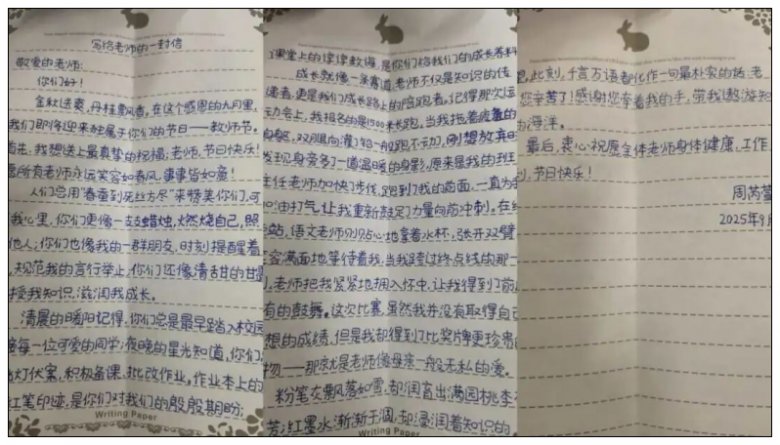 写给老师的一封信
敬爱的老师：
你们好！
金秋送爽，丹桂飘香，在这个感恩的九月里，
我们即将迎来独属于你们的节日——教师节。
首先，我想送上最真挚的祝福：老师，节日快乐！
愿所有老师永远笑容如春风，事事皆如意！
人们总用“春蚕到死丝方尽”来赞美你们，可
我心里，你们更像一支蜡烛，燃烧自己，照
他人；你们也像我的一群朋友，时刻提醒着
规范我的言行举止；你们还像清甜的甘
授我知识，滋润我成长。
清晨的暖阳记得，你们总是最早踏入校园
每一位可爱的同学；夜晚的星光知道，你们
灯伏案，积极备课，批改作业。作业本上的
红笔印迹，是你们对我们的殷殷期盼；
Writing Paper
课堂上的谆谆教诲，是你们给我们的成长
成长就像一条赛道，老师不仅是知识的传
播者，更是我们成长路上的陪跑者。记得那次运
动会上，我报名的是1500米长跑，当我拖着疲惫的
身躯，双腿像灌了铅一般跑不动了，刚想放弃时
发现身旁多了一道温暖的身影，原来是我的班
主任老师加快了步伐，跑到了我的前面，一直为我
加油打气，让我重新鼓足了力量向前冲刺。在终
点站，语文老师贴心地拿着水杯，张开双臂
笑容满面地等待着我，当我跨过终点线的那一
，老师把我紧紧地拥入怀中，让我得到了前
有的鼓舞。这次比赛，虽然我并没有取得自己
想的成绩，但是我却得到了比奖牌更珍贵
物——那就是老师像母亲一般无私的爱。
粉笔灰飘落如雪，却润育出满园桃李
芳；红墨水渐渐干涸，却浸润着知识的
Writing Paper
，此刻，千言万语都化作一句最朴素的话：老
您辛苦了！感谢您牵着我的手，带我遨游知
的海洋。
最后，衷心祝愿全体老师身体健康，工作
利，节日快乐！
周芮萱
2025年9月